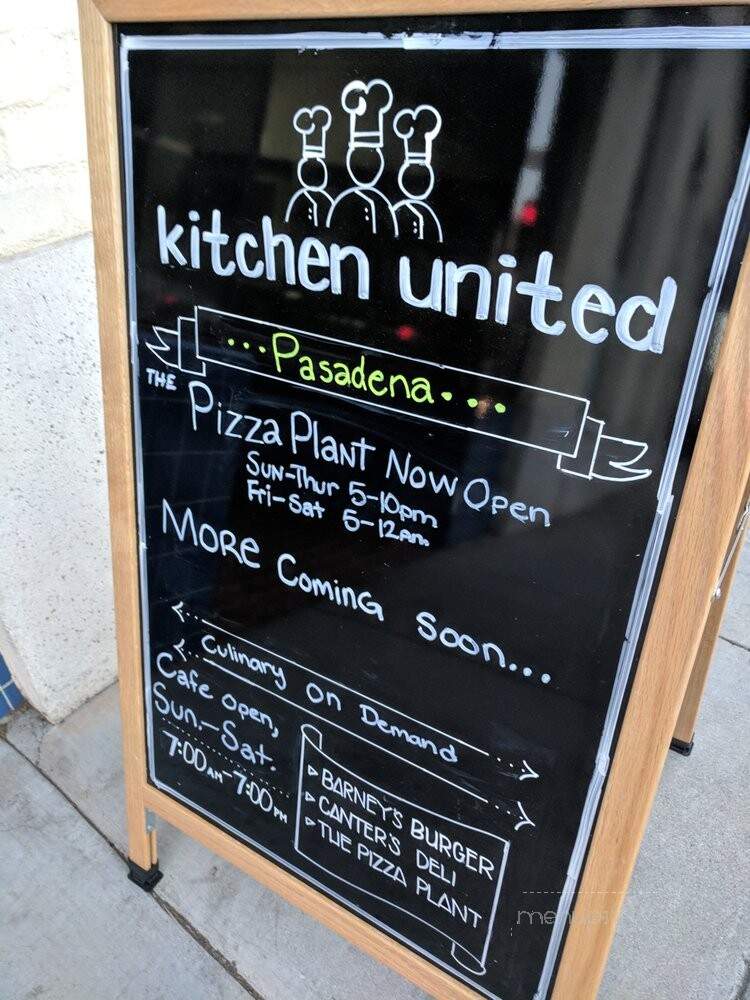 kitchen united
...Pasadena...
THE
Pizza Plant Now Open
Sun-Thur 5-10pm
Fri-Sat 5-12am.
More Coming Soon...
Culinary on Demand
Cafe open,
Sun.-Sat.
7:00AM-7:00PM
BARNEY'S BURGER
CANTER'S DELI
THE PIZZA PLANT